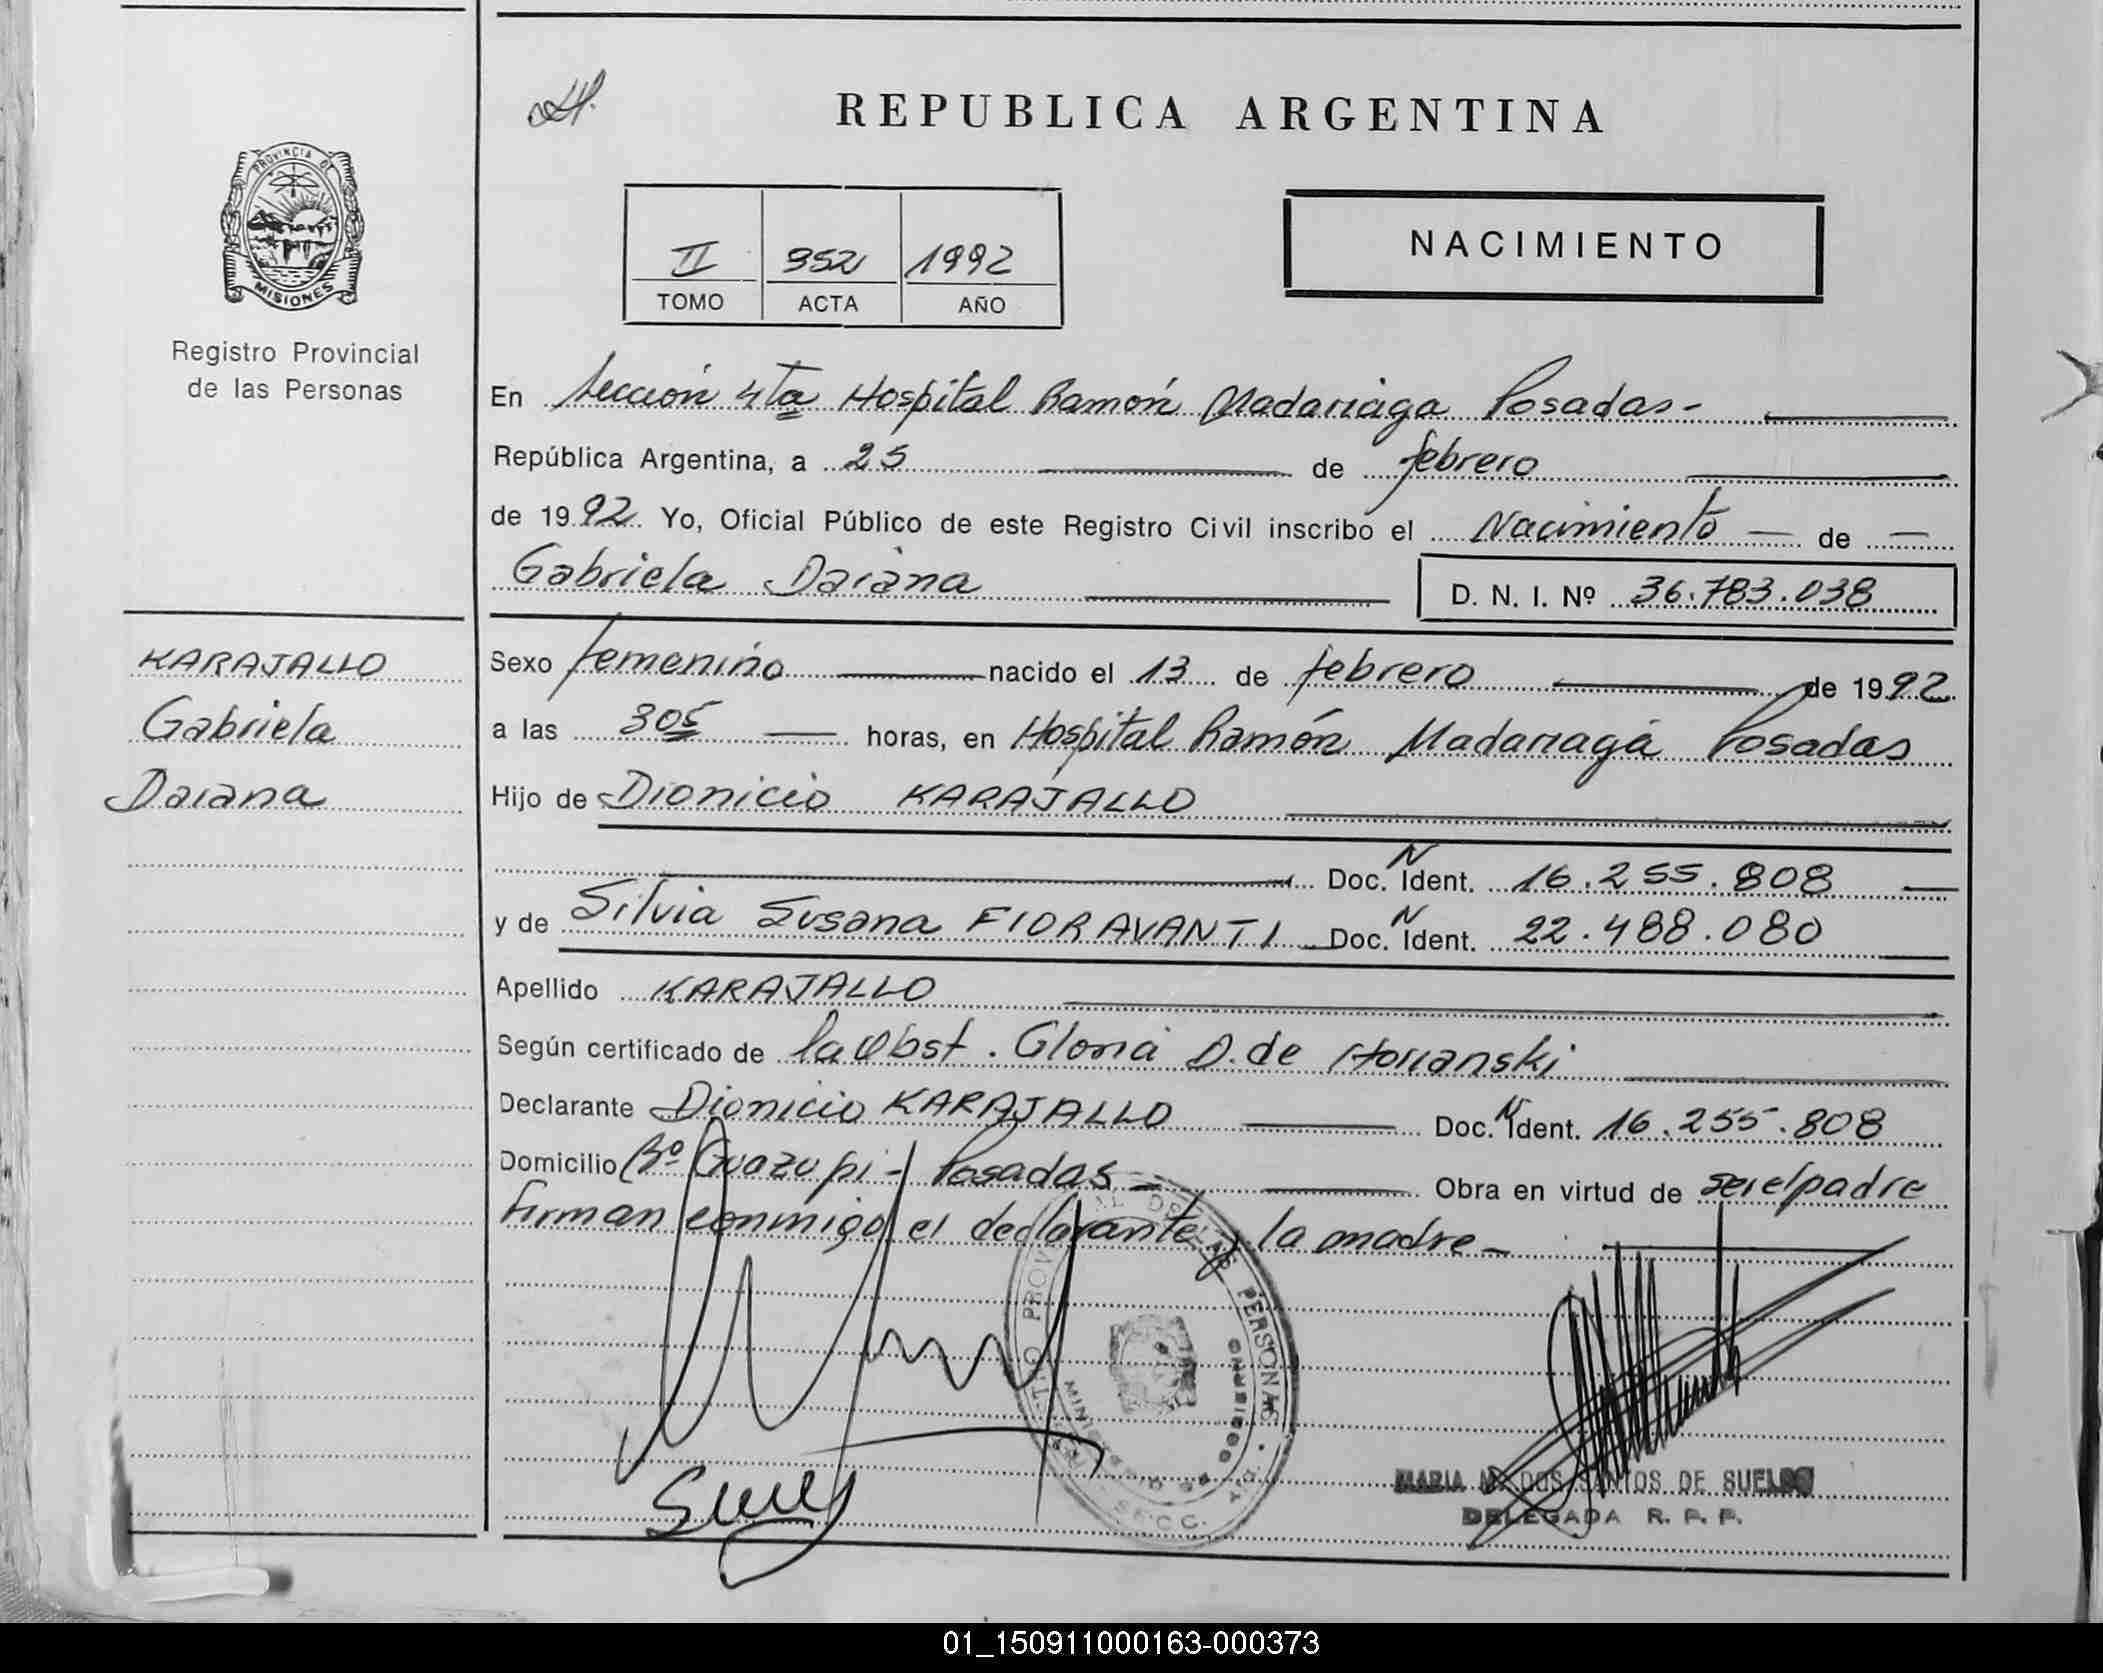 REPUBLICA ARGENTINA
PROVINCIA DE
MISIONES
Registro Provincial
de las Personas
II 952 1992
TOMO ACTA AÑO
NACIMIENTO
En Sección 4ta Hospital Ramón Madariaga Posadas-
República Argentina, a 25 de febrero
de 1992 Yo, Oficial Público de este Registro Civil inscribo el Nacimiento de
Gabriela Daiana D. N. I. Nº 36.783.038
KARAJALLO
Gabriela
Daiana
Sexo femenino nacido el 13 de febrero de 1992
a las 305 horas, en Hospital Ramón Madariaga Posadas
Hijo de Dionicio KARAJALLO
Doc. N Ident. 16.255.808
y de Silvia Susana FIORAVANTI Doc. N Ident. 22.488.080
Apellido KARAJALLO
Según certificado de la Obst. Gloria D. de
Declarante Dionicio KARAJALLO Doc. N Ident. 16.255.808
Domicilio Bº Guazupi - Posadas - Obra en virtud de ser el padre
firman conmigo el declarante y la madre -
DE LAS PERSONAS
MARIA DOS SANTOS DE SUELDO
DELEGADA R. P. P.
01_150911000163-000373